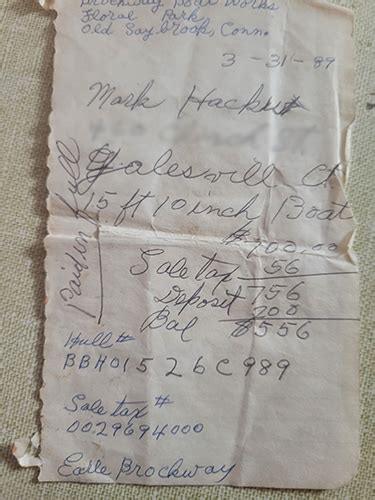 Brockway Boat Works
Floral Park
Old Saybrook, Conn.
3-31-89
Mark Hackett
Yalesvill Ct.
15 ft 10 inch Boat
$700.00
Sale tax 56
756
Deposit 200
Bal $556
Paid in full
Hull #
BBH01526C989
Sale tax #
0029694000
Earle Brockway